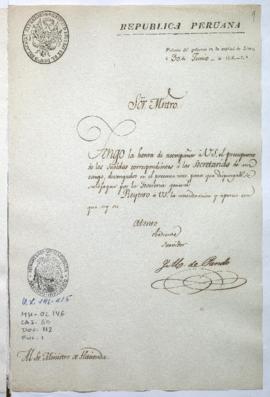 REPUBLICA PERUANA
Palacio del gobierno en la capital de Lima
á 30 de Junio de
Sõr. Mntro.
Tengo la honra de acompañar á V.S. el presupuesto
de los sueldos correspondientes á las Secretarías de mi
cargo, devengados en el presente mes, para que disponga
satisfagan por la Tesorería general
Reytero á V.S. la consideracion y aprecio con
que soy su
Atento
Servidor
J. M. de Pando
O.L. 146-
MH-OL 146
CAJ. 50
DOC. 112
FOL. 1
M. de Ministro de Hacienda